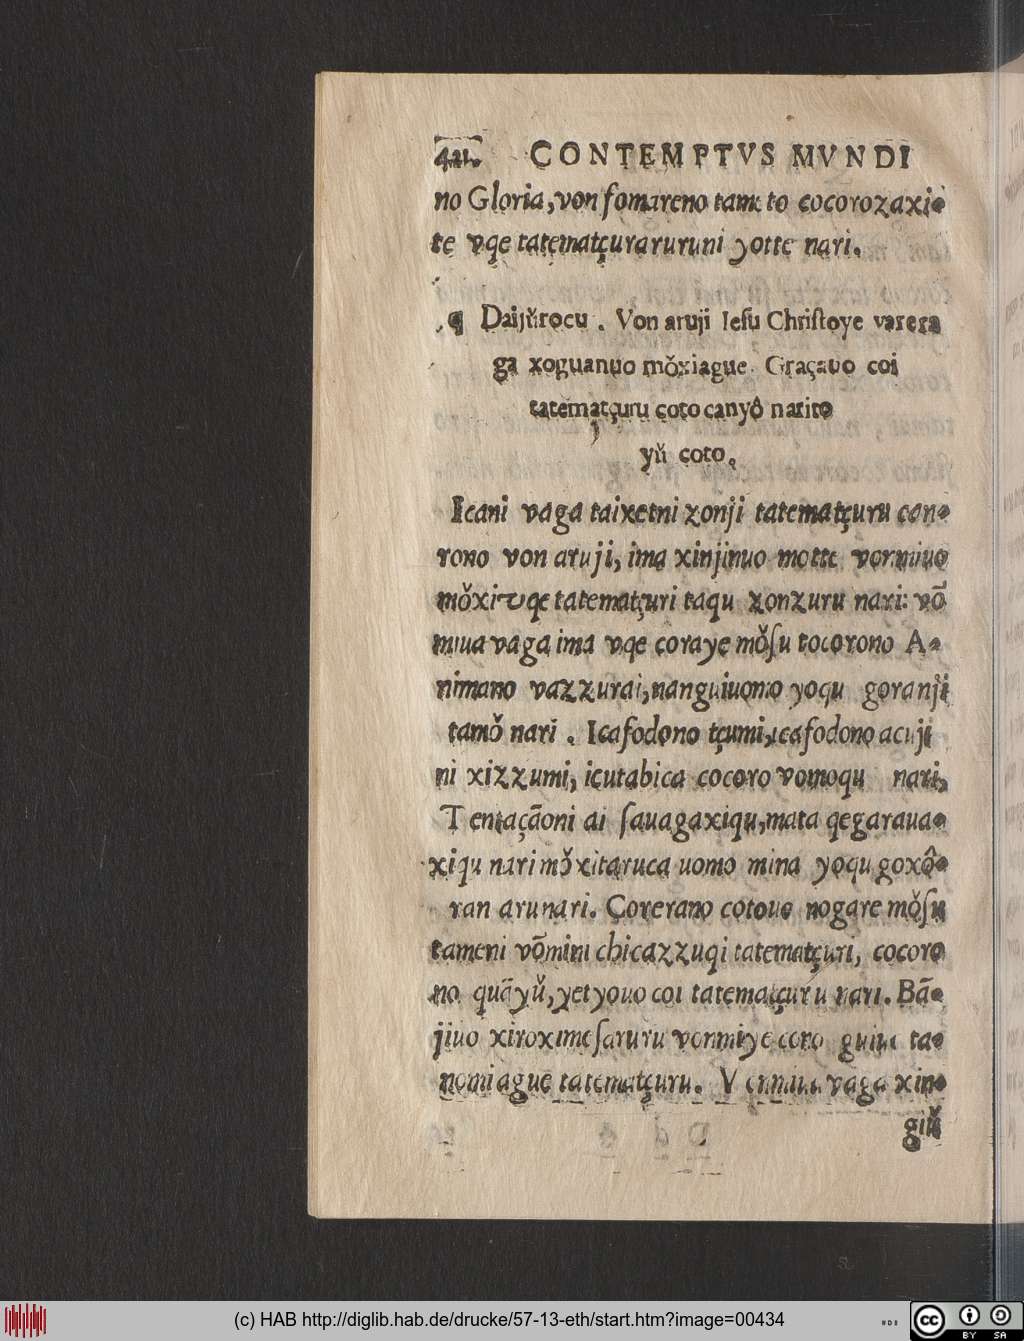 421. CONTEMPTVS MVNDI
no Gloria, von fomareno tame to cocorozaxi-
te vqe tatematçuraruruni yotte nari.
¶ Daijŭrocu. Von aruji Iesu Christoye varera
ga xoguanuo mŏxiague. Graçauo coi
tatematçuru coto canyô narito
yŭ coto.
Icani vaga taixetni zonji tatematçuru con-
rono von aruji, ima xinjinuo motte vonmiuo
mŏxi vqe tatematçuri taqu zonzuru nari: võ
miua vaga ima vqe coraye mŏsu tocorono A-
nimano vazzurai, nanguiuomo yoqu goranji
tamŏ nari. Icafodono tçumi, icafodono acuji
ni xizzumi, icutabica cocoro vomoqu nari,
Tentaçãoni ai sauagaxiqu, mata qegaraua-
xiqu nari mŏxitaruca uomo mina yoqu goxô-
ran aru nari. Corerano cotouo nogare mŏsu
tameni võmini chicazzuqi tatematçuri, cocoro
no quãyŭ, yetyouo coi tatematçuru nari. Bã-
jiuo xiroximesaruru vonmiye coto guiue ta-
nomiague tatematçuru. V vaga xin-
giŭ
(c) HAB http://diglib.hab.de/drucke/57-13-eth/start.htm?image=00434
cc BY SA